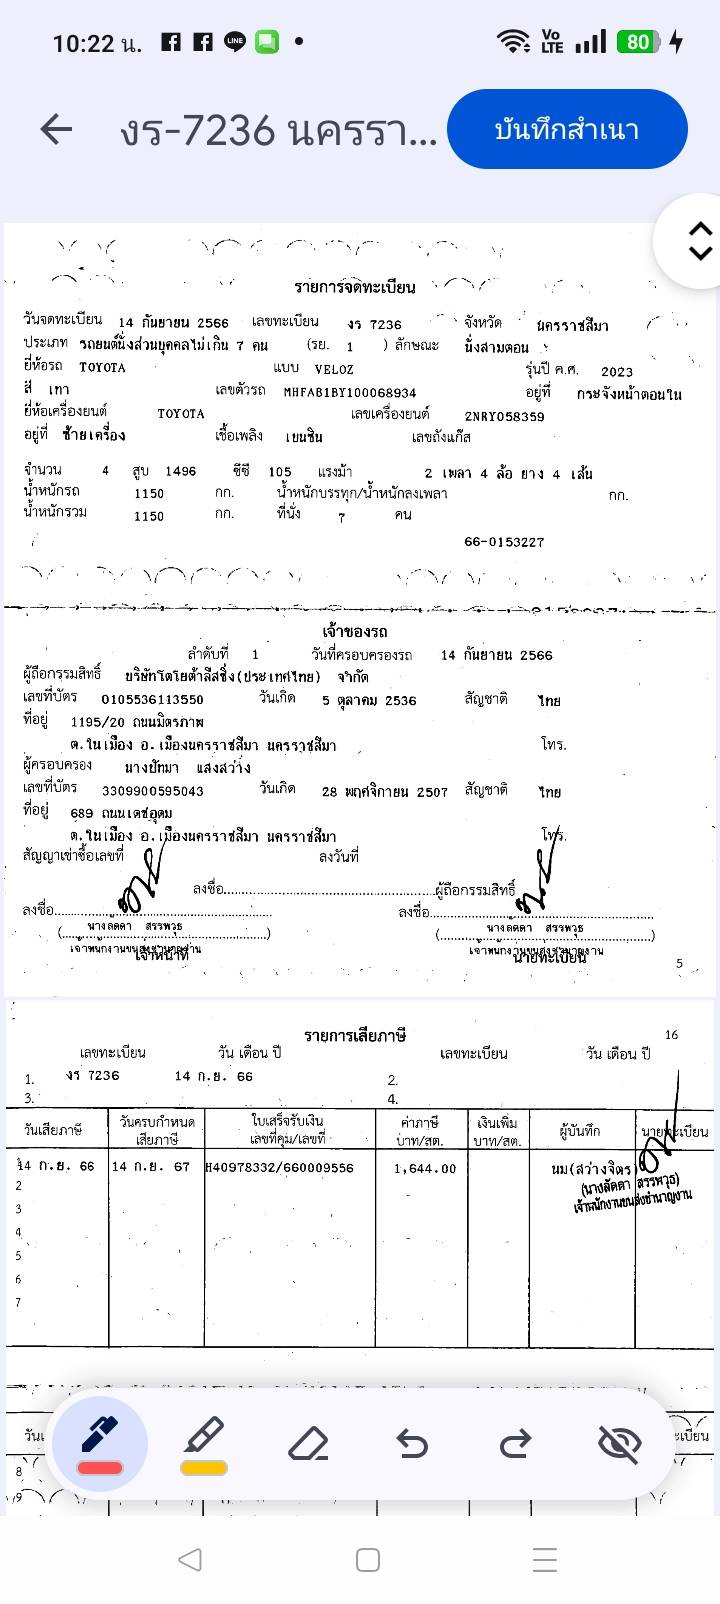 10:22 น. LINE Vo LTE 80
งร-7236 นครรา... บันทึกสำเนา
รายการจดทะเบียน
วันจดทะเบียน 14 กันยายน 2566 เลขทะเบียน งร 7236 จังหวัด นครราชสีมา
ประเภท รถยนต์นั่งส่วนบุคคลไม่เกิน 7 คน (รย. 1 ) ลักษณะ นั่งสามตอน
ยี่ห้อรถ TOYOTA แบบ VELOZ รุ่นปี ค.ศ. 2023
สี เทา เลขตัวรถ MHFAB1BY100068934 อยู่ที่ กระจังหน้าตอนใน
ยี่ห้อเครื่องยนต์ TOYOTA เลขเครื่องยนต์ 2NRY058359
อยู่ที่ ซ้ายเครื่อง เชื้อเพลิง เบนซิน เลขถังแก๊ส
จำนวน 4 สูบ 1496 ซีซี 105 แรงม้า 2 เพลา 4 ล้อ ยาง 4 เส้น
น้ำหนักรถ 1150 กก. น้ำหนักบรรทุก/น้ำหนักลงเพลา กก.
น้ำหนักรวม 1150 กก. ที่นั่ง 7 คน
66-0153227
เจ้าของรถ
ลำดับที่ 1 วันที่ครอบครองรถ 14 กันยายน 2566
ผู้ถือกรรมสิทธิ์ บริษัทโตโยต้าลีสซิ่ง(ประเทศไทย) จำกัด
เลขที่บัตร 0105536113550 วันเกิด 5 ตุลาคม 2536 สัญชาติ ไทย
ที่อยู่ 1195/20 ถนนมิตรภาพ
ต.ในเมือง อ.เมืองนครราชสีมา นครราชสีมา โทร.
ผู้ครอบครอง นางปัทมา แสงสว่าง
เลขที่บัตร 3309900595043 วันเกิด 28 พฤศจิกายน 2507 สัญชาติ ไทย
ที่อยู่ 689 ถนนเดชอุดม
ต.ในเมือง อ.เมืองนครราชสีมา นครราชสีมา โทร.
สัญญาเช่าซื้อเลขที่ ลงวันที่
ลงชื่อ ผู้ถือกรรมสิทธิ์
ลงชื่อ ลงชื่อ
(นางลัดดา สรรพวุธ) (นางลัดดา สรรพวุธ)
เจ้าพนักงานขนส่งชำนาญงาน เจ้าพนักงานขนส่งชำนาญงาน
เจ้าหน้าที่ นายทะเบียน 5
รายการเสียภาษี 16
เลขทะเบียน วัน เดือน ปี เลขทะเบียน วัน เดือน ปี
1. งร 7236 14 ก.ย. 66 2.
3. 4.
วันเสียภาษี วันครบกำหนดเสียภาษี ใบเสร็จรับเงิน เลขที่คุม/เลขที่ ค่าภาษี บาท/สต. เงินเพิ่ม บาท/สต. ผู้บันทึก นายทะเบียน
14 ก.ย. 66 14 ก.ย. 67 H40978332/660009556 1,644.00 นม(สว่างจิตร)
(นางลัดดา สรรพวุธ)
เจ้าพนักงานขนส่งชำนาญงาน
2
3
4
5
6
7
8
9